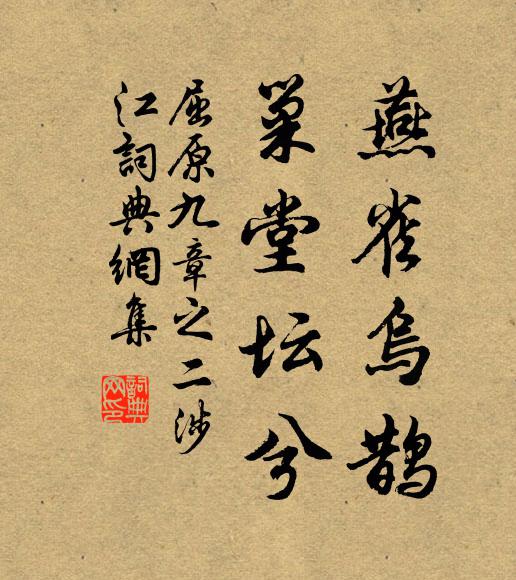 燕雀烏鵲
巢堂坛兮
屈原九章之二涉
江詞典網集
詞典
网印